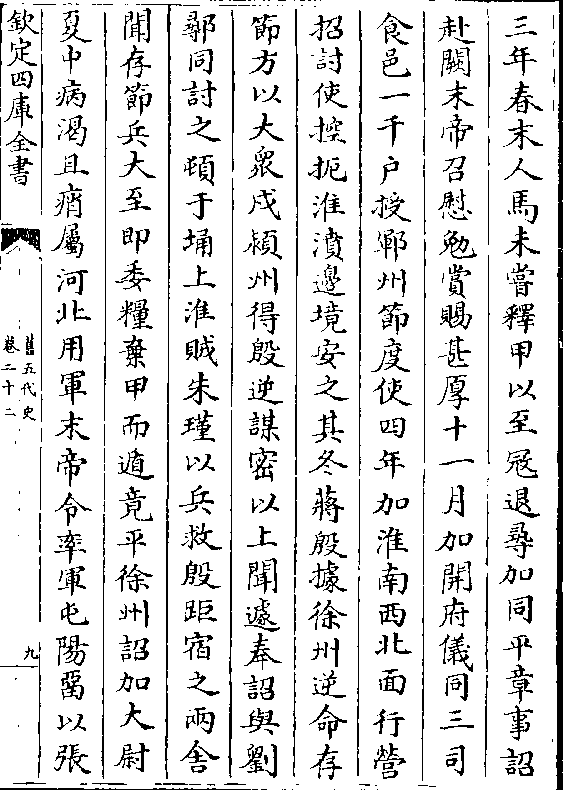 三年春末人馬未嘗釋甲以至冦退尋加同平章事詔
赴闕末帝召慰勉賞賜甚厚十一月加開府儀同三司
食邑一千户授鄆州節度使四年加淮南西北面行營
招討使控扼淮濆邉境安之其冬蔣殷據徐州逆命存
節方以大衆戍潁州得殷逆謀密以上聞遽奉詔與劉
鄩同討之頓于埇上淮賊朱瑾以兵救殷距宿之兩舍
聞存節兵大至即委糧棄甲而遁竟平徐州詔加大尉
夏中病渴且痟屬河北用軍末帝令率軍屯陽畱以張
欽定四庫全書
舊五代史
卷二十二
九